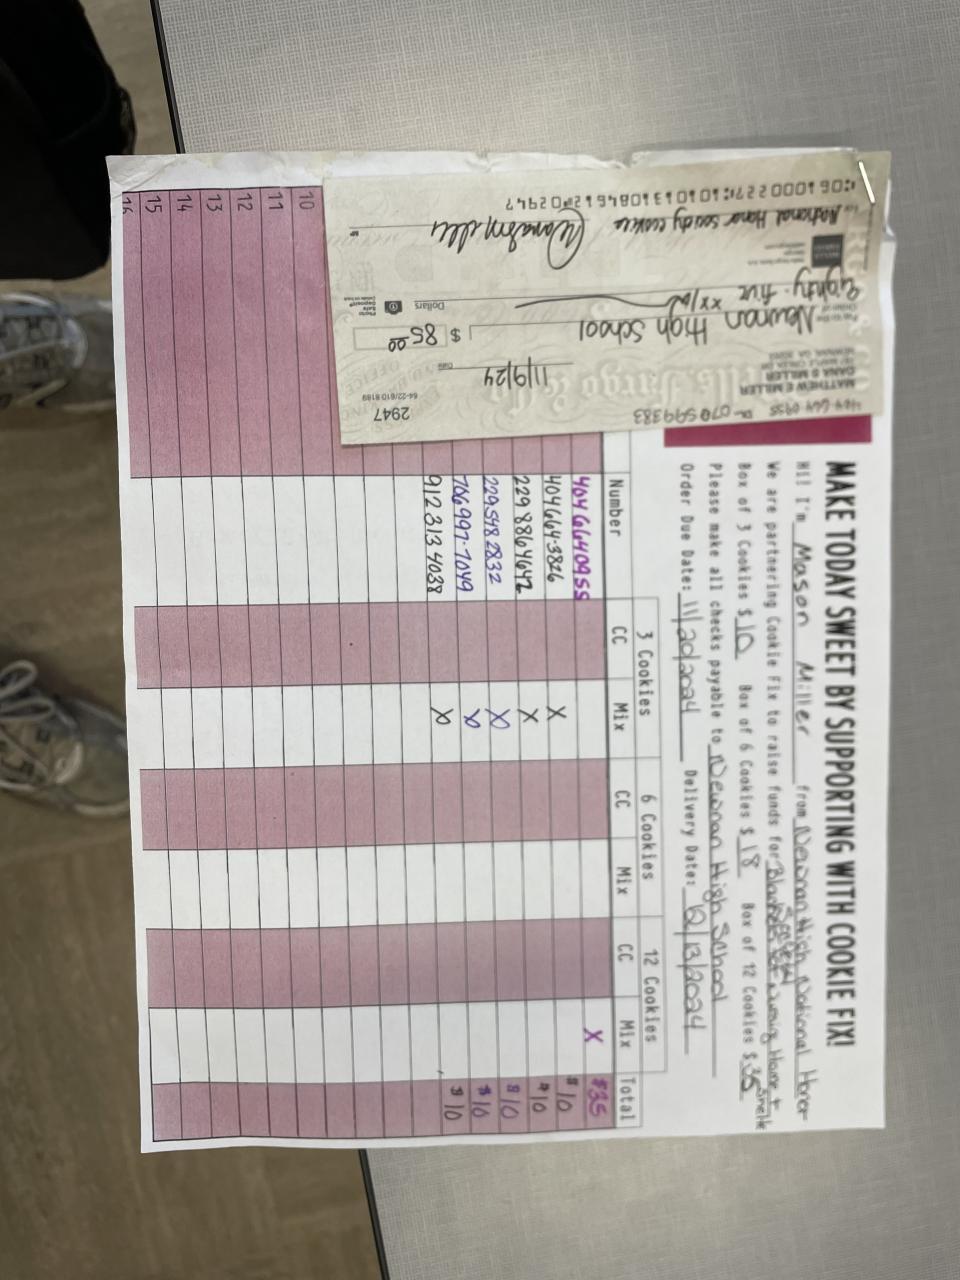 MAKE TODAY SWEET BY SUPPORTING WITH COOKIE FIX!
Hi! I'm Mason Miller from Newnan High National Honor Society
We are partnering Cookie Fix to raise funds for Nursing Home +
Box of 3 Cookies $ 10 Box of 6 Cookies $ 18 Box of 12 Cookies $ 35
Please make all checks payable to Newnan High School
Order Due Date: 11/20/2024 Delivery Date: 12/13/2024
3 Cookies 6 Cookies 12 Cookies
Number CC Mix CC Mix CC Mix Total
404 664 0955 X $35
404 664-3826 X $10
229 886 4642 X $10
229 548 2832 X $10
706 997-7049 X $10
912 313 4038 X $10
10
11
12
13
14
15
16
404 664 0955 078599383
2947
MATTHEW E MILLER
DANA S MILLER
64-22/610 8189
11/9/24
Date
Pay to the
Order of Newnan High School $ 85.00
Eighty five xx/100 Dollars
Photo
Safe
Deposit®
WELLS
FARGO
For National Honor Society cookies